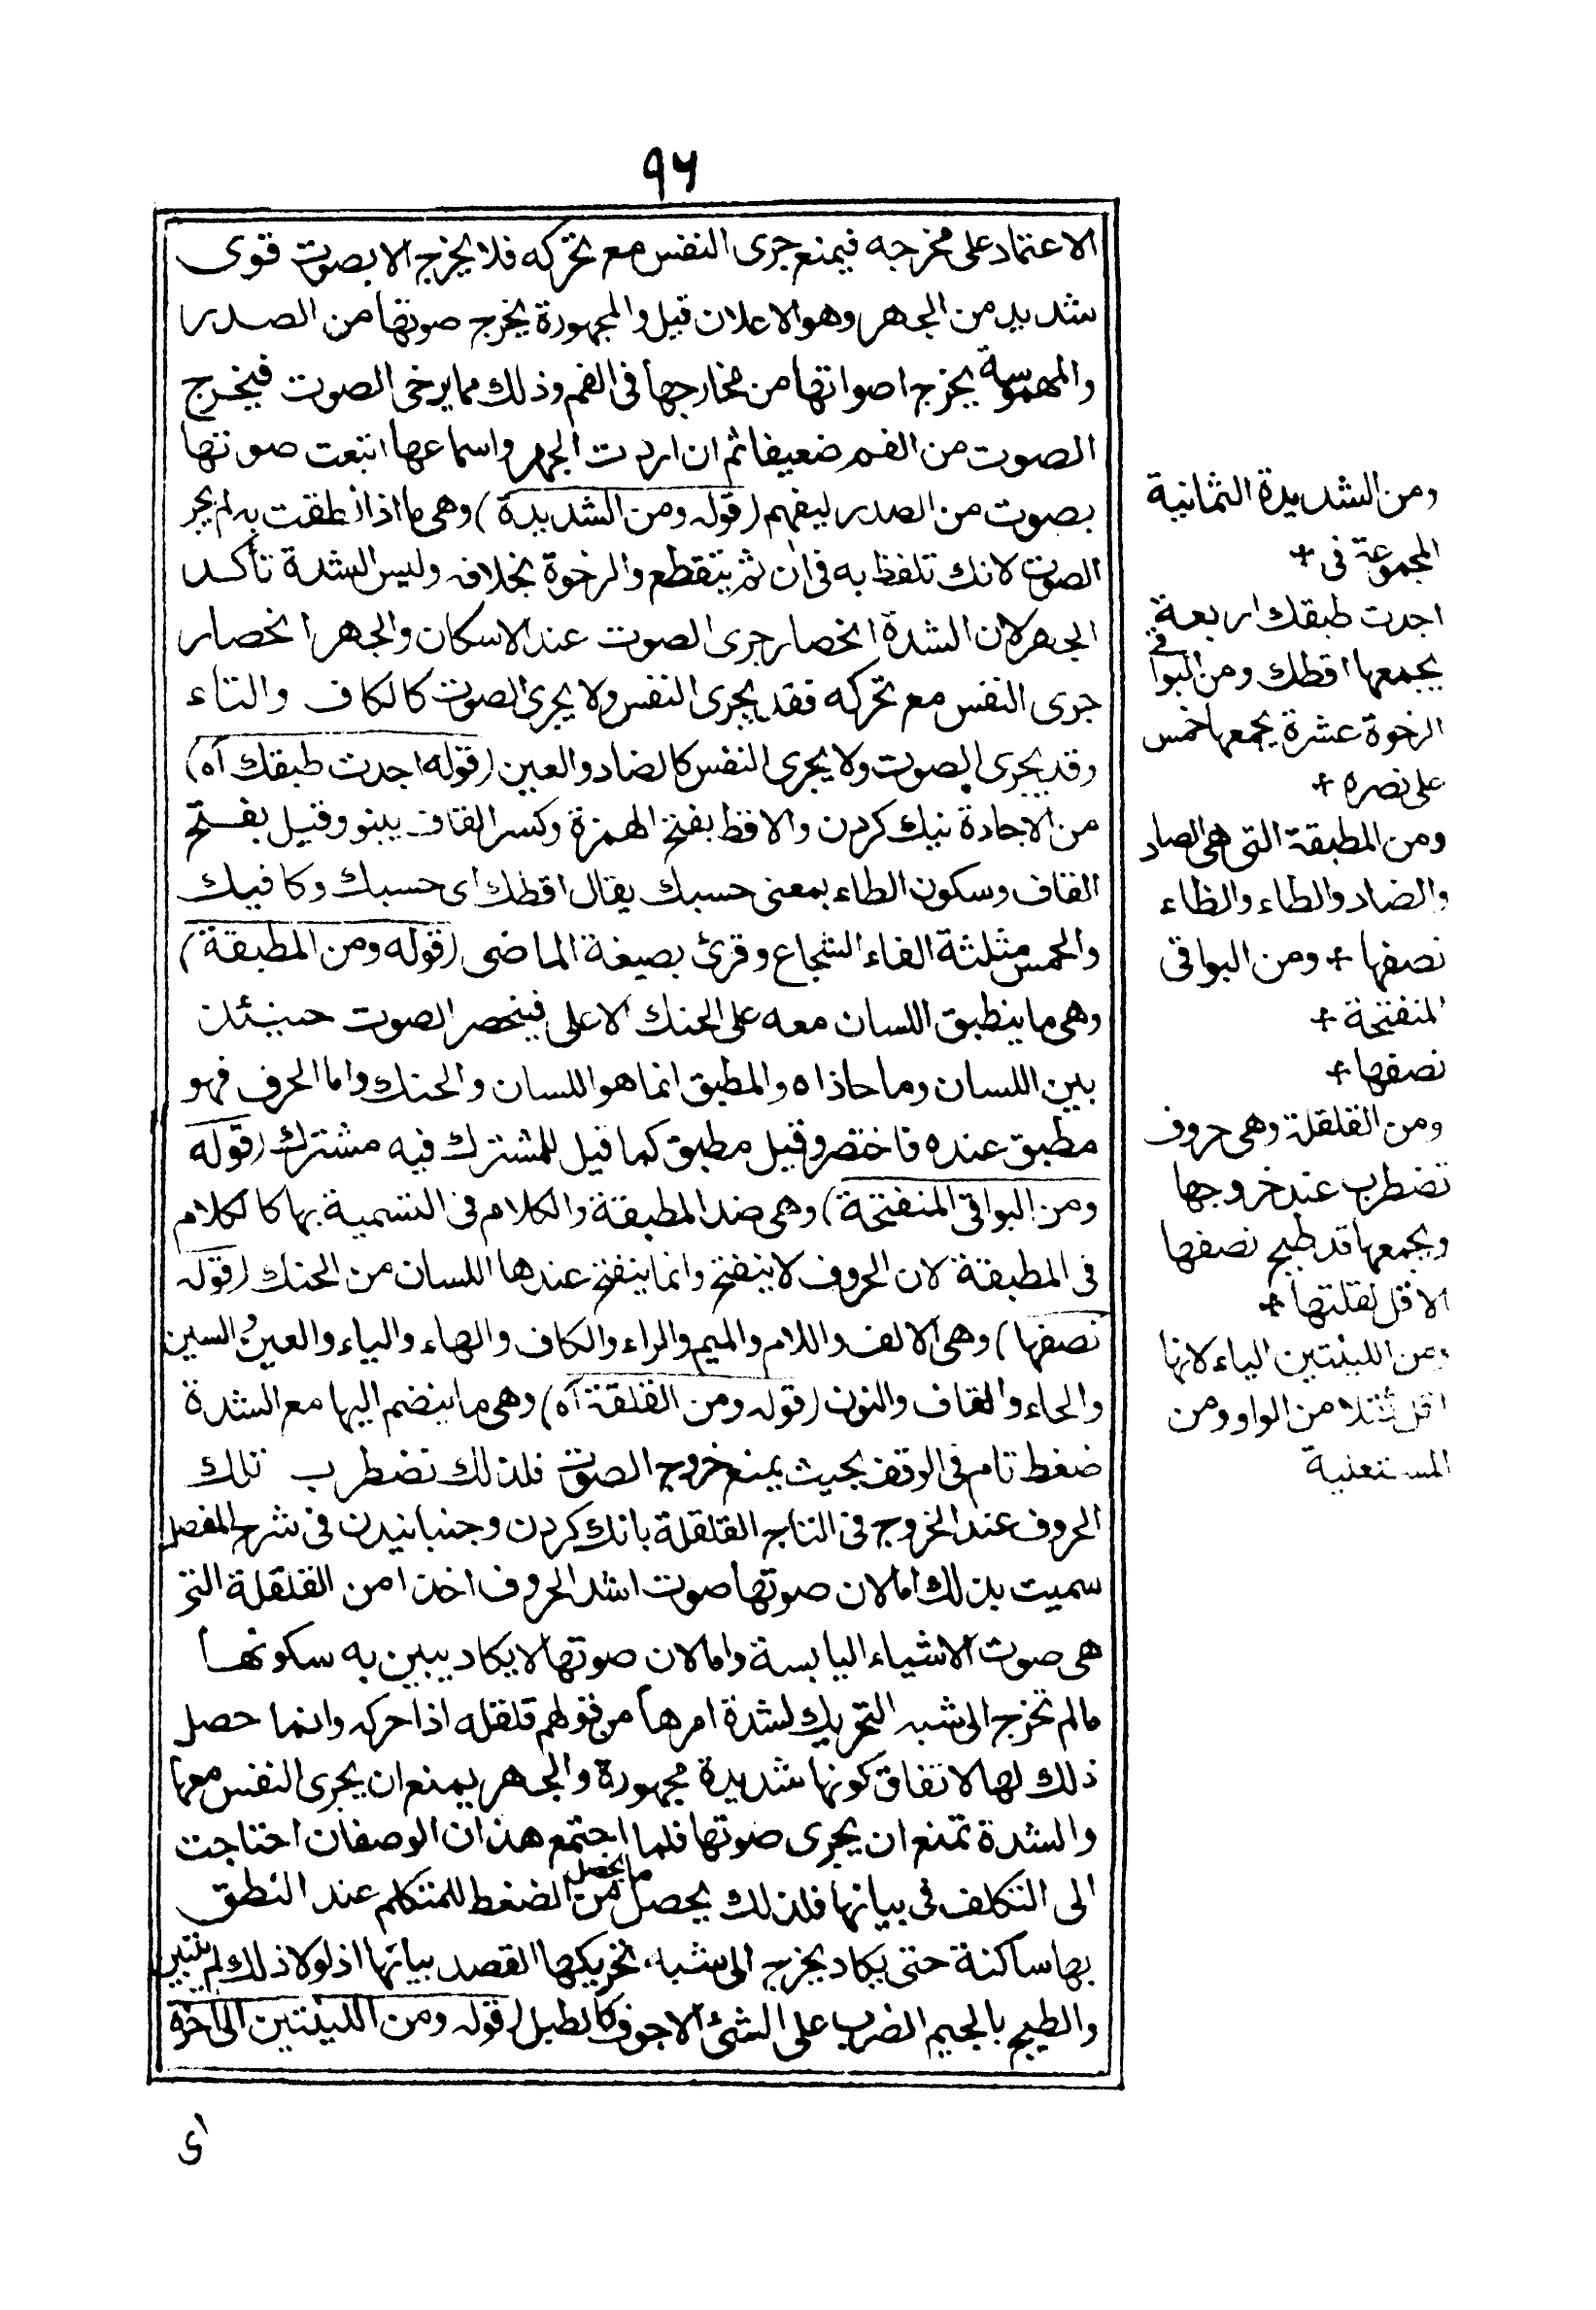 ٩٦
الاعتماد على مخرجه فيمنع جرى النفس مع تحركه فلا يخرج الا بصوت قوى
شديد من الجهر وهو الاعلان قيل والمجهورة يخرج صوتها من الصدر
والمهموسة يخرج اصواتها من مخارجها فى الفم وذلك مما يرخى الصوت فيخرج
الصوت من الفم ضعيفا ثم ان اردت الجهر واسماعها اتبعت صوتها
بصوت من الصدر ليفهم (قوله ومن الشديدة) وهى ما اذا نطقت به لم يجر
الصوت لانك تلفظ به فى ان ثم ينقطع والرخوة بخلافه وليس الشدة تأكد
الجهر لان الشدة انحصار جرى الصوت عند الاسكان والجهر انحصار
جرى النفس مع تحركه فقد يجرى النفس ولا يجرى الصوت كالكاف والتاء
وقد يجرى الصوت ولا يجرى النفس كالضاد والعين (قوله اجدت طبقك آه)
من الاجادة نيك كردن والاقط بفتح الهمزة وكسر القاف پينو وقيل بفتح
القاف وسكون الطاء بمعنى حسبك يقال اقطك اى حسبك وكافيك
والحمس مثلثة الفاء الشجاع وقرئ بصيغة الماضى (قوله ومن المطبقة)
وهى ما ينطبق اللسان معه على الحنك الاعلى فينحصر الصوت حينئذ
بين اللسان وما حاذاه والمطبق انما هو اللسان والحنك واما الحرف فهو
مطبق عنده فاختصر وقيل مطبق كما قيل للمشترك فيه مشترك (قوله
ومن البواقى المنفتحة) وهى ضد المطبقة والكلام فى التسمية بها كالكلام
فى المطبقة لان الحروف لا ينفتح وانما ينفتح عندها اللسان من الحنك (قوله
نصفها) وهى الالف واللام والميم والراء والكاف والهاء والياء والعين والسين
والحاء والقاف والنون (قوله ومن القلقة آه) وهى ما ينضم اليها مع الشدة
ضغط تام فى الوقف بحيث يمنع خروج الصوت فلذلك تضطرب تلك
الحروف عند الخروج فى التاج القلقلة بانك كردن وجنبانيدن فى شرح المفصل
سميت بذلك اما لان صوتها صوت اشد الحروف اخذا من القلقلة التى
هى صوت الاشياء اليابسة واما لان صوتها لا يكاد يبين به سكونها
مالم تخرج الى شبه التحريك لشدة امرها من قولهم قلقله اذا حركه وانما حصل
ذلك لها لاتفاق كونها شديدة مجهورة والجهر يمنع ان يجرى النفس معها
والشدة تمنع ان يجرى صوتها فلما اجتمع هذان الوصفان احتاجت
الى التكلف فى بيانها فلذلك يحصل ما يحصل من الضغط للمتكلم عند النطق
بها ساكنة حتى يكاد يخرج الى شبه تحريكها القصد بيانها اذ لولا ذلك لم يتبين
والطبج بالجيم الضرب على الشئ الاجوف كالطبل (قوله ومن اللينتين الى آخره
اى
ومن الشديدة الثمانية
المجموعة فى +
اجدت طبقك اربعة
يجمعها اقطك ومن البواقى
الرخوة عشرة يجمعها خمس
على نصره +
ومن المطبقة التى هى الصاد
والضاد والطاء والظاء
نصفها + ومن البواقى
المنفتحة +
نصفها +
ومن القلقلة وهى حروف
تضطرب عند خروجها
ويجمعها قد طبج نصفها
الاقل لقلتها +
ومن اللينتين الياء لانها
اقل ثقلا من الواو ومن
المستعلية